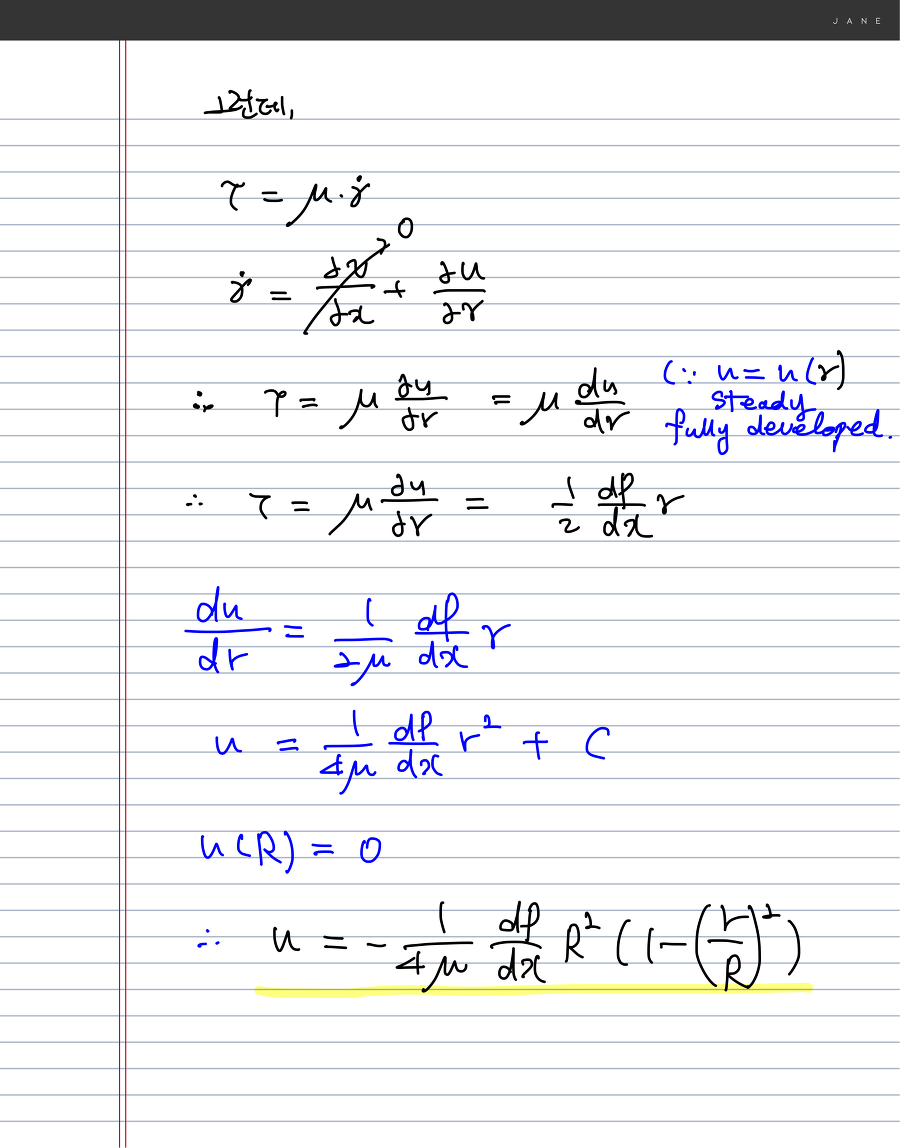 JANE
그런데,
τ = μ·γ̇
γ̇ = ∂v/∂x → 0 + ∂u/∂r
∴ τ = μ ∂u/∂r = μ du/dr (∵ u = u(r)
steady
fully developed.
∴ τ = μ ∂u/∂r = 1/2 dp/dx r
du/dr = 1/2μ dp/dx r
u = 1/4μ dp/dx r² + C
u(R) = 0
∴ u = - 1/4μ dp/dx R² (1-(r/R)²)